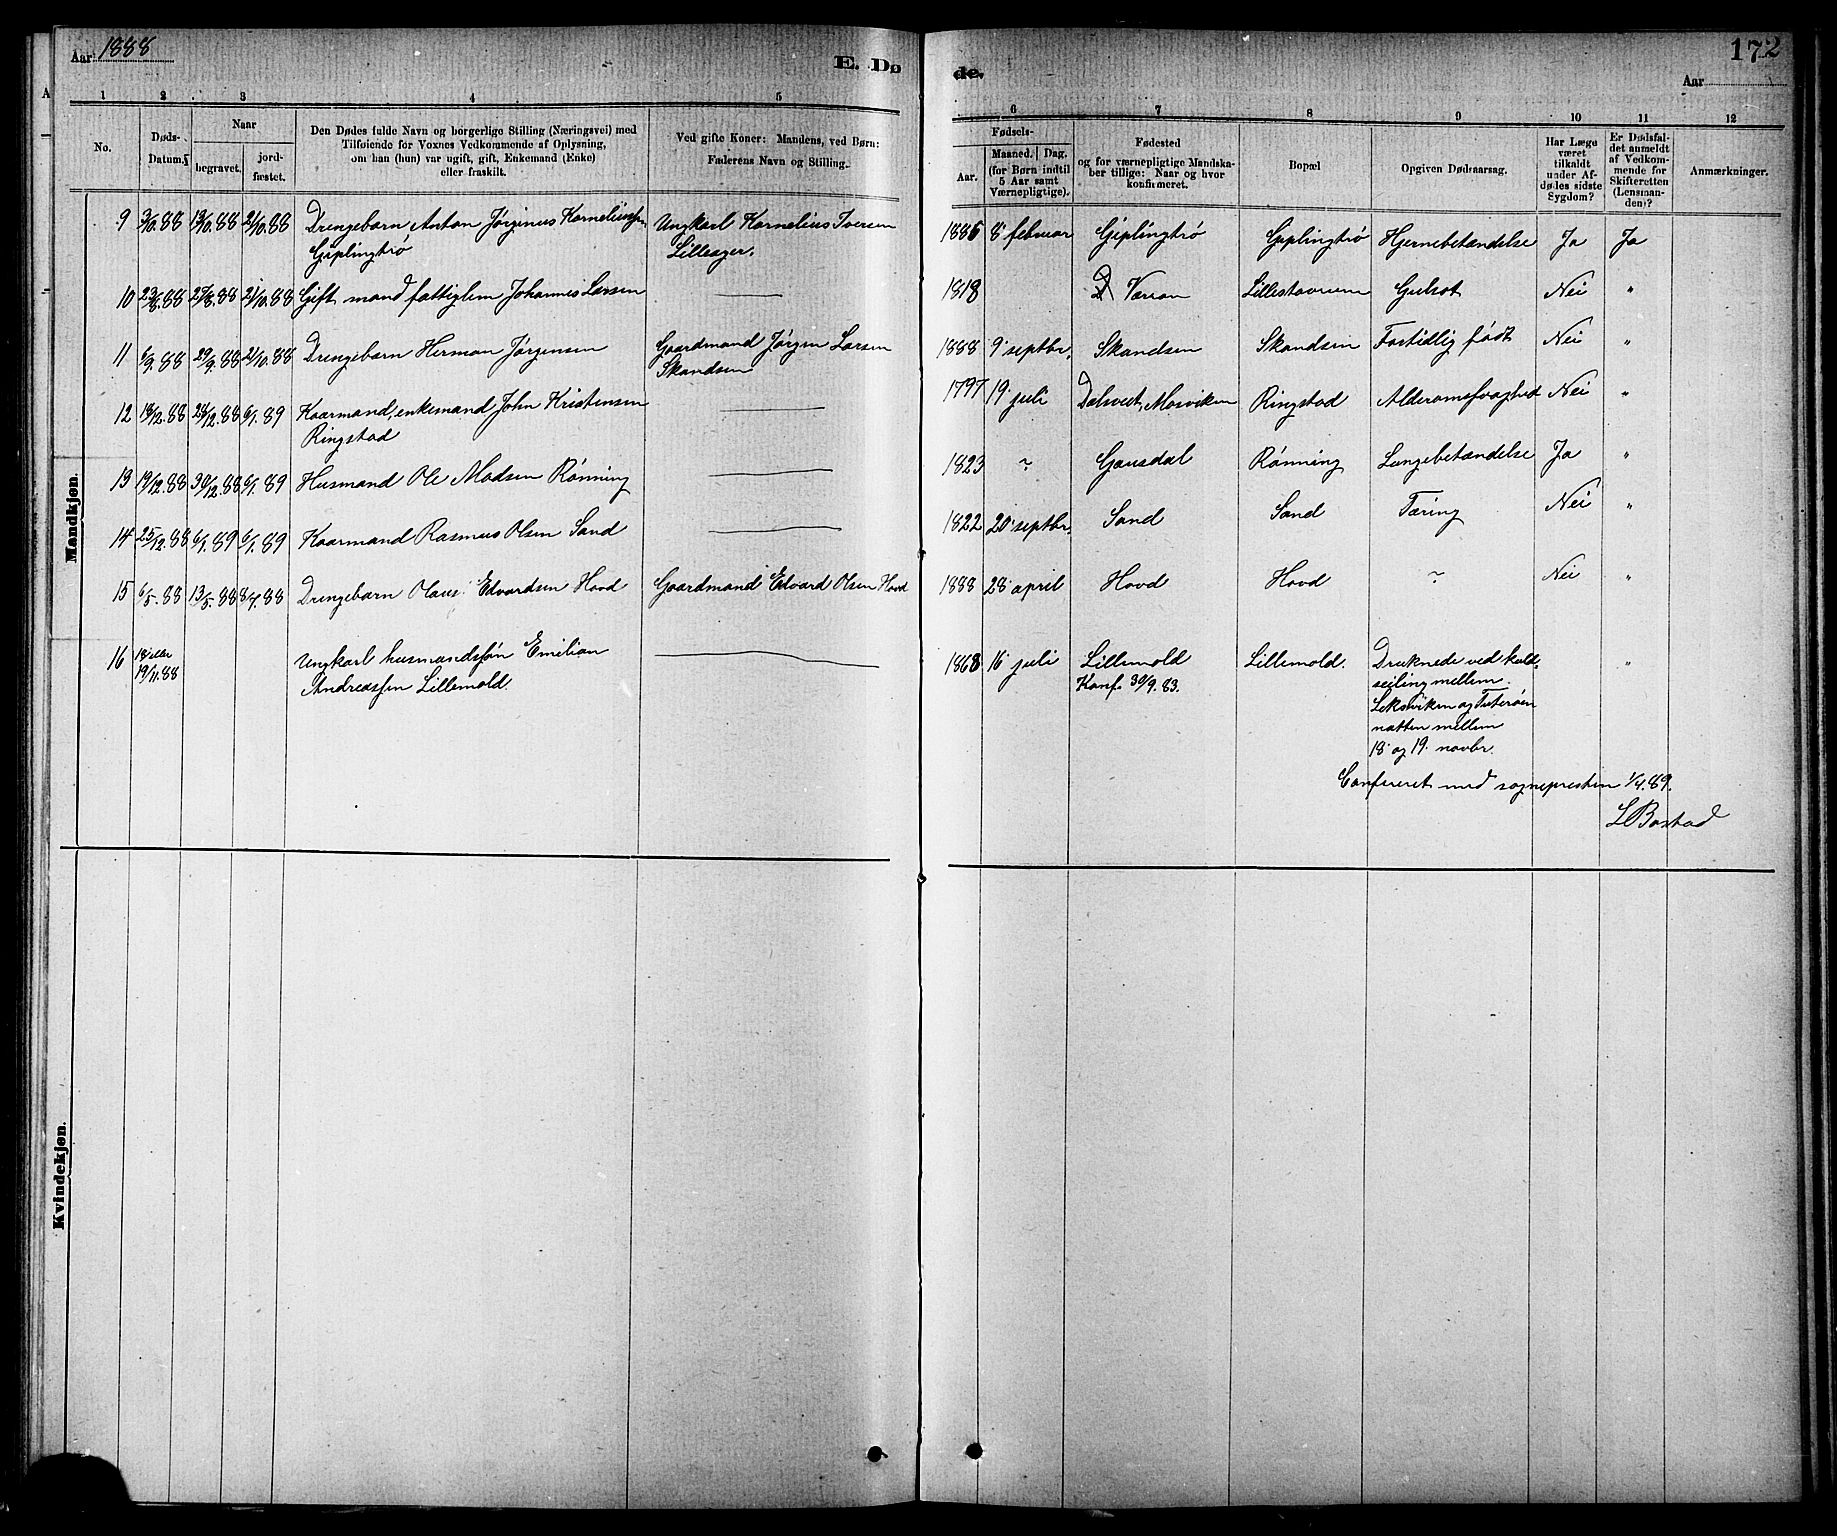 Aar 1888
E. Dø
de.
172
Aar
1 2 3 4 5 6 7 8 9 10 11 12
No.
Døds-
Datum.
Naar
begravet.
jord-
fæstet.
Den Dødes fulde Navn og borgerlige Stilling (Næringsvei) med
Tilføiende for Voxnes Vedkommende af Oplysning,
om han (hun) var ugift, gift, Enkemand (Enke)
eller fraskilt.
Ved gifte Koner: Mandens, ved Børn:
Faderens Navn og Stilling.
Fødsels-
Aar.
Maaned. Dag.
(for Børn indtil
5 Aar samt
Værnepligtige).
Fødested
og for værnepligtige Mandska-
ber tillige: Naar og hvor
konfirmeret.
Bopæl
Opgiven Dødsaarsag.
Har Læge
været
tilkaldt
under Af-
dødes sidste
Sygdom?
Er Dødsfal-
det anmeldt
af Vedkom-
mende for
Skifteretten
(Lensman-
den)?
Anmærkninger.
Mandkjøn.
9 3/10.88 13/10.88 21/10.88 Drengebarn Anton Jørginus Korneliussn Ungkarl Kornelius Iversen 1886 8 februar Giplingtrø Giplingtrø Hjernebetændelse Ja Ja
Giplingtrø Lilleager.
10 23/8.88 27/8.88 21/10.88 Gift, mand fattiglem Johannes Larsen 1818 Væran Lillestavrum Gulsot Nei "
11 9/9.88 29/9.88 21/10.88 Drengebarn Herman Jørgensen Gaardmand Jørgen Larsen 1888 9 septbr. Skandsen Skandsen Fortidlig født Nei "
Skandsen
12 18/12.88 28/12.88 6/1.89 Kaarmand, enkemand John Kristensen 1797 19 juli Dalsvedt, Mosviken Ringstad Alderdomssvaghed Nei "
Ringstad
13 19/12.88 30/12.88 6/1.89 Husmand Ole Madsen Rønning 1823 ~ Gausdal Rønning Lungebetændelse Ja "
14 25/12.88 6/1.89 6/1.89 Kaarmand Rasmus Olsen Sand 1822 20 septbr. Sand Sand Tæring Nei "
15 6/5.88 13/5.88 8/7.88 Drengebarn Olaus Edvardsen Hovd Gaardmand Edvard Olsen Hovd 1888 28 april Hovd Hovd ~ Nei "
16 18 eller Ungkarl husmandssøn Emilian 1868 16 juli Lillemold Lillemold. Druknede ved kuld- "
19/11.88 Andreassen Lillemold. Konf. 30/9.83. seiling mellem
Leksviken og Tuterøen
natten mellem
18 og 19. novbr.
Confereret med sognepresten 1/4.89.
L Bostad
Kvindekjøn.